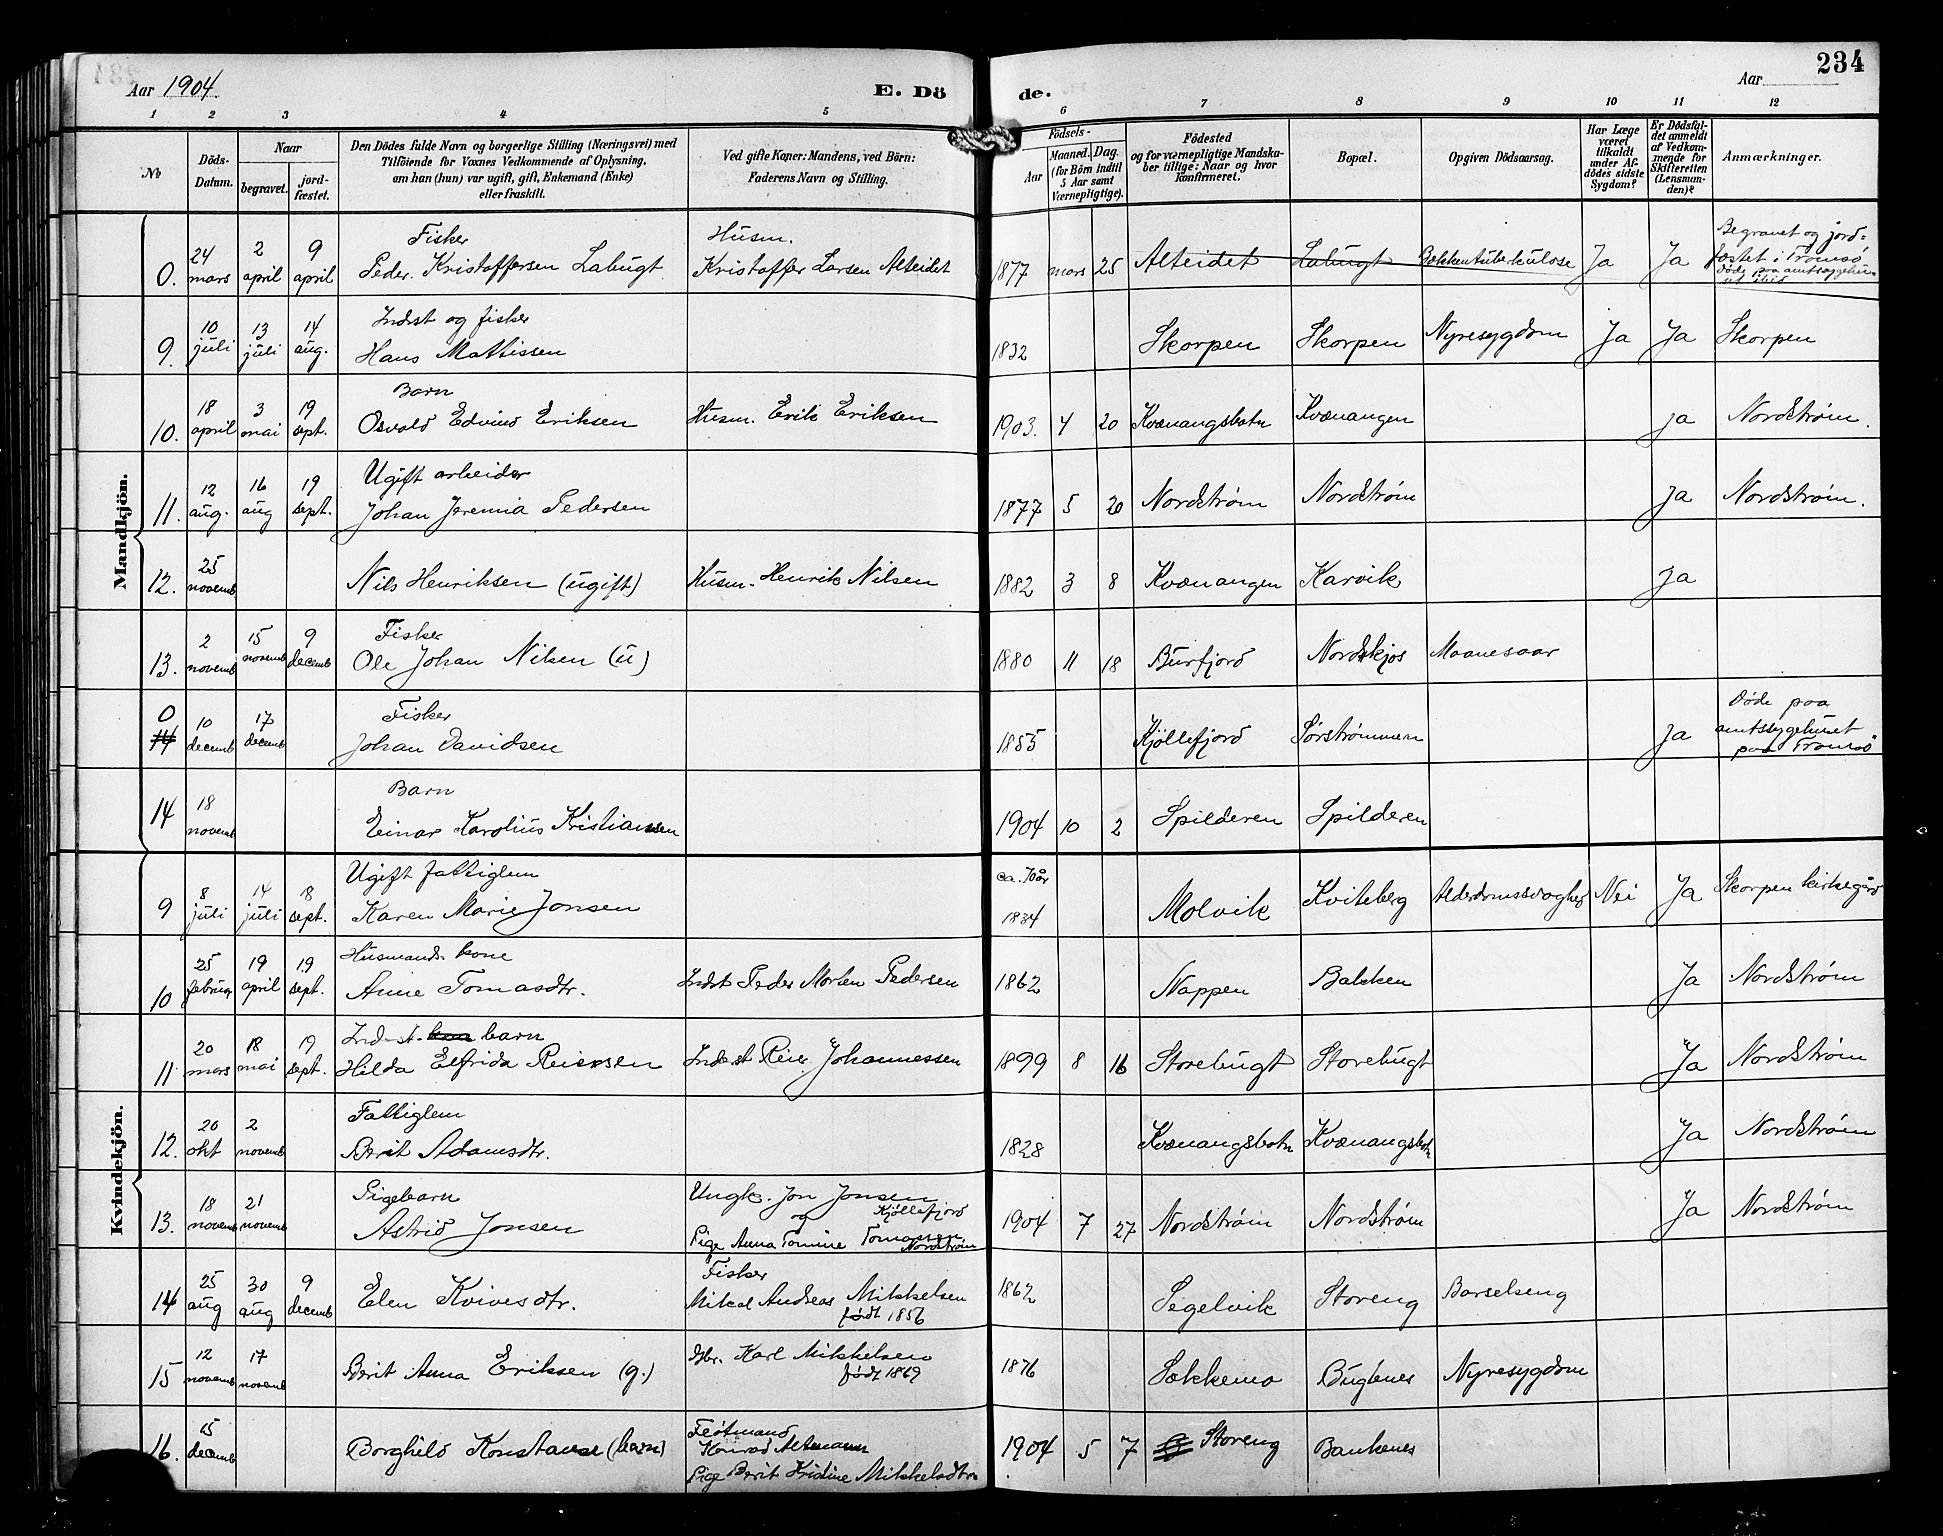 Aar 1904.
E. Dö
de.
Aar
234
1 2 3 4 5 6 7 8 9 10 11 12
No
Döds-Datum.
Naar
begravet.
jord-fæstet.
Den Dödes fulde Navn og borgerlige Stilling (Næringsvei) med
Tilföiende for Voxnes Vedkommende af Oplysning,
om han (hun) var ugift, gift, Enkemand (Enke)
eller fraskilt.
Ved gifte Koner: Mandens, ved Börn:
Faderens Navn og Stilling.
Födsels-
Aar
Maaned. Dag.
(for Börn indtil
5 Aar samt
Værnepligtige).
Födested
og for værnepligtige Mandska-
ber tillige: Naar og hvor
konfirmeret.
Bopæl.
Opgiven Dödsaarsag.
Har Læge
været
tilkaldt
under Af-
dödes sidste
Sygdom?
Er Dödsfal-
det anmeldt
af Vedkom-
mende for
Skifteretten
(Lensman-
den)?
Anmærkninger.
Mandkjön.
0. 24 mars 2 april 9 april Fisker
Peder Kristoffersen Labugt Husm.
Kristoffer Larsen Alteidet 1877 mars 25 Alteidet Labugt Bækkentuberkulose Ja Ja Begravet og jord-
fæstet i Tromsö
Döde paa amtssygehu-
set
9. 10 juli 13 juli 14 aug. Inderst og fisker
Hans Mattissen 1832 Skorpen Skorpen Nyresygdom Ja Ja Skorpen
10. 18 april 3 mai 19 sept. Barn
Osvald Edvind Eriksen Husm. Erik Eriksen 1903. 4 20 Kvænangsbotn Kvænangen ja Nordstrøm.
11. 12 aug. 16 aug 19 sept. Ugift arbeider
Johan Jeremia Pedersen 1877 5 20 Nordstrøm Nordstrøm ja Nordstrøm.
12. 25 novemb Nils Henriksen (ugift) Husm. Henrik Nilsen 1882 3 8 Kvænangen Karvik Ja
13. 2 novemb 15 novemb 9 decemb Fisker
Ole Johan Nilsen (u) 1880 11 18 Burfjord Nordkjos Maanesaar
0
14 10 decemb 17 decemb Fisker
Johan Davidsen 1855 Kjöllefjord Sørstrømmen Ja Døde paa
amtssygehuset
paa Tromsö
14 18 novemb Barn
Einar Karolius Kristiansen 1904 10 2 Spilderen Spilderen
Kvindekjön.
9 8 juli 14 juli 18 sept. Ugift fattiglem
Karen Marie Jonsen ca. 70 år
1834 Molvik Kviteberg Alderdomssvaghed Nei Ja Skorpen kirkegård
10 25 februar 19 april 19 sept. Husmands kone
Anne Tomasdtr. Indst Peder Morten Pedersen 1862 Nappen Bakken Ja Nordstrøm
11 20 mars 18 mai 19 sept. Ind-st. kona barn
Hilda Elfrida Reiersen Inderst Reier Johannessen 1899 8 16 Storebugt Storebugt Ja Nordstrøm
12. 20 okt 2 novemb Fattiglem
Berit Adamsdtr. 1828 Kvænangsbotn Kvænangsbotn Ja Nordstrøm
13. 18 novemb 21 novemb Pigebarn
Astrid Jonsen Ungk. Jon Jonsen
Kjöllefjord
og
Pige Anna Tomine Tomassen
Nordstrøm 1904 7 27 Nordstrøm Nordstrøm Ja Nordstrøm
14 25 aug 30 aug 9 decemb Elen Kvivesdtr. Fisker
Mikal Andreas Mikkelsen
født 1856 1862 Segelvik Storeng Barselseng
15 12 novemb 17 novemb Berit Anna Eriksen (g.) Gbr. Karl Mikkelsen
født 1869 1876 Sækkemo Bugtenes Nyresygdom
16. 15 decemb Borghild Konstanse (barn) Fløtmand
Konrad Altmann
Pige Berit Kristine Mikkelsdtr 1904 5 7 Storeng Bankenes